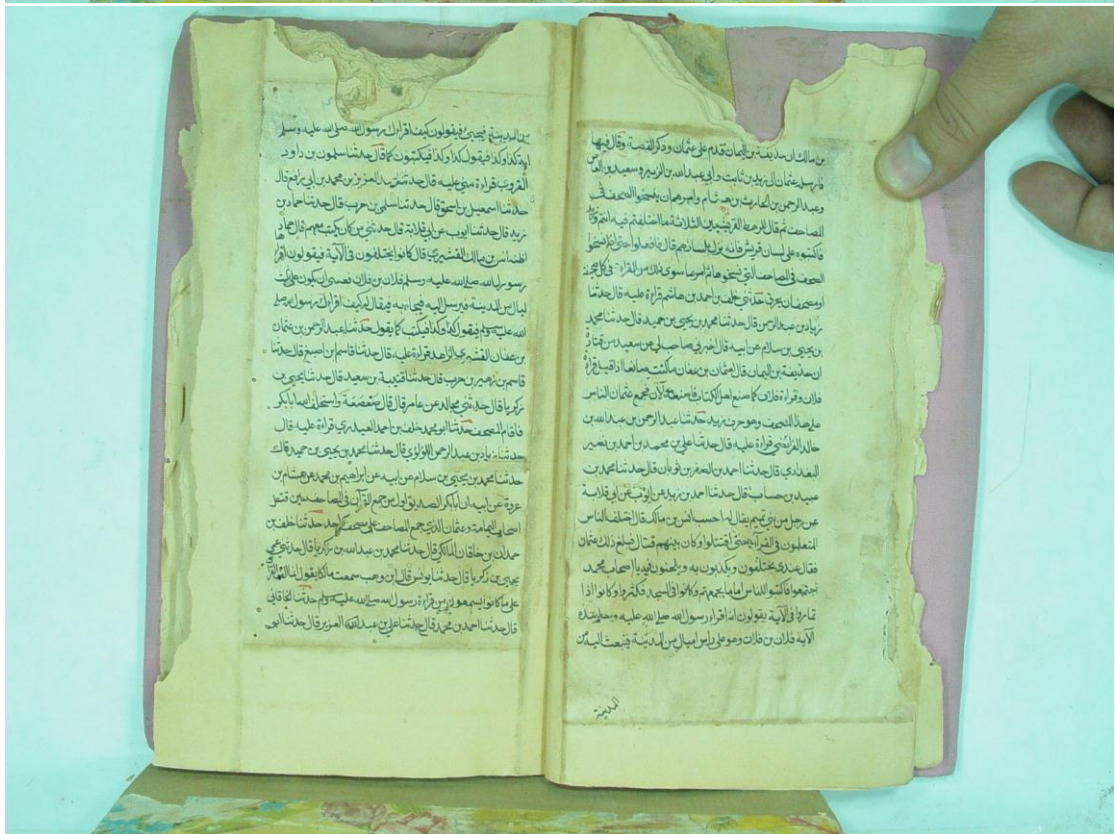 بن مالك ان حذيفة بن اليمان قدم على عثمان وذكر القصة وقال فيها
فارسل عثمان الى زيد بن ثابت والى عبد الله بن الزبير وسعيد بن العاص
وعبد الرحمن بن الحارث بن هشام وامرهم ان ينسخوا الصحف في
المصاحف ثم قال للرهط القرشيين الثلاثة ما اختلفتم فيه انتم وزيد
فاكتبوه على لسان قريش فانه نزل بلسانهم قال ففعلوا حتى اذا نسخوا
الصحف في المصاحف التي نسخوها ثم امر بما سوى ذلك من القراءة في كل صحيفة
او مصحف ان يحرق حدثني خلف بن احمد بن هاشم قراءة عليه قال حدثنا
زياد بن عبد الرحمن قال حدثنا محمد بن يحيى بن حميد قال حدثنا محمد
بن يحيى بن سلام عن ابيه قال اخبرني صاحب لي عن سعيد عن قتادة
ان حذيفة بن اليمان قال لعثمان بن عفان ما كنت صانعا اذا قيل قراءة
فلان وقراءة فلان كما صنع اهل الكتاب فاصنعه الآن فجمع عثمان الناس
على هذا المصحف وهو حرف زيد حدثنا عبد الرحمن بن عبد الله بن
خالد الفرائضي قراءة عليه قال حدثنا علي بن محمد بن احمد بن نصير
البغدادي قال حدثنا احمد بن الصقر بن ثوبان قال حدثنا محمد بن
عبيد بن حساب قال حدثنا احمد بن زيد عن ايوب عن ابي قلابة
عن رجل من بني تميم يقال له احسب انس بن مالك قال اختلف الناس
المتعلمون في القرآن حتى اقتتلوا وكان بينهم قتال فبلغ ذلك عثمان
فقال عندي يختلفون ويكذبون به ويلحنون فيه يا اصحاب محمد
اجتمعوا فاكتبوا للناس اماما يجمعهم وكانوا في المسجد فكثروا وكانوا اذا
تماروا في الآية يقولون انه اقراء رسول الله صلى الله عليه وسلم هذه
الآية فلان بن فلان وهو على راس اميال من المدينة فيبعث اليه من
المدينة
من المدينة فيجيئ فيقولون كيف اقراءك رسول الله صلى الله عليه وسلم
اية كذا وكذا فيقول كذا وكذا فيكتبون كما قال حدثنا سلمون بن داود
القروي قراءة مني عليه قال حدثنا عبد العزيز بن محمد بن ابي رافع قال
حدثنا اسمعيل بن اسحق قال حدثنا سليمن بن حرب قال حدثنا حماد بن
زيد قال حدثنا ايوب عن ابي قلابة قال حدثني من كان يكتب معهم قال حماد
اظنه انس بن مالك القشيري قال كانوا يختلفون في الآية فيقولون اقراها
رسول الله صلى الله عليه وسلم فلان بن فلان فعسى ان يكون على ثلث
ليال من المدينة فيرسل اليه فيجاء به فيقال له كيف اقراك رسول الله صلى
الله عليه وسلم فيقول كذا وكذا فيكتب كما يقول حدثنا عبد الرحمن بن عثمان
بن عفان القشيري الزاهد قراءة عليه قال حدثنا قاسم بن اصبغ قال حدثنا
قاسم بن زهير بن حرب قال حدثنا قتيبة بن سعيد قال حدثنا يحيى بن
زكريا قال حدثني مجالد عن عامر قال قال صعصعة واستخلف الله ابا بكر
فاقام المصحف حدثنا ابو محمد خلف بن احمد العبدري قراءة عليه قال
حدثنا زياد بن عبد الرحمن اللؤلؤي قال حدثنا محمد بن يحيى بن حميد قال
حدثنا محمد بن يحيى بن سلام عن ابيه عن ابراهيم بن محمد عن هشام بن
عروة عن ابيه ان ابا بكر الصديق اول من جمع القرآن في المصاحف حين قتل
اصحاب اليمامة وعثمان الذي جمع المصاحف على مصحف واحد حدثنا خلف بن
حمدان بن خاقان المالكي قال حدثنا محمد بن عبد الله بن زكريا قال حدثني عمي
يحيى بن زكريا قال حدثنا يونس قال ابن وهب سمعت مالكا يقول انما الف القرآن
على ما كانوا يسمعون من قراءة رسول الله صلى الله عليه وسلم حدثنا الخاقاني
قال حدثنا احمد بن محمد قال حدثنا علي بن عبد العزيز قال حدثنا ابو